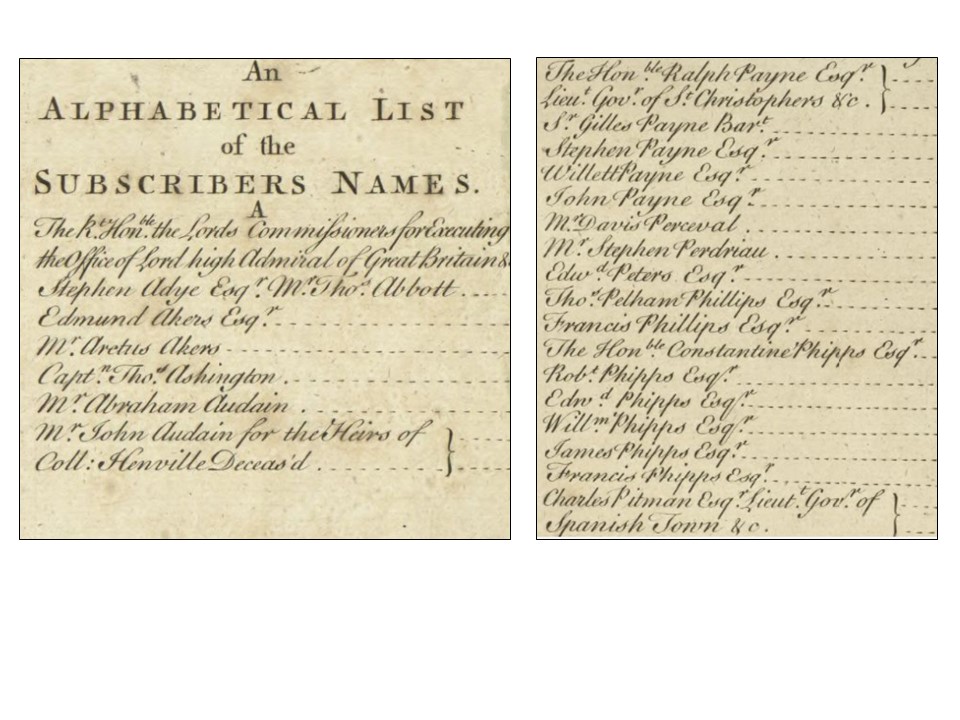 An
ALPHABETICAL LIST
of the
SUBSCRIBERS NAMES.
A
The Rt. Honble. the Lords Commissioners for Executing
the Office of Lord high Admiral of Great Britain &
Stephen Adye Esqr. Mr. Thos. Abbott
Edmund Akers Esqr.
Mr. Aretus Akers
Captn. Thos. Ashington
Mr. Abraham Audain
Mr. John Audain for the Heirs of
Coll: Henville Deceas'd
The Honble. Ralph Payne Esqr.
Lieut. Govr. of St. Christophers &c.
Sr. Gilles Payne Bart.
Stephen Payne Esqr.
Willett Payne Esqr.
John Payne Esqr.
Mr. Davis Perceval
Mr. Stephen Perdriau
Edwd. Peters Esqr.
Thos. Pelham Phillips Esqr.
Francis Phillips Esqr.
The Honble. Constantine Phipps Esqr.
Robt. Phipps Esqr.
Edwd. Phipps Esqr.
Willm. Phipps Esqr.
James Phipps Esqr.
Francis Phipps Esqr.
Charles Pitman Esqr. Lieutt. Govr. of
Spanish Town &c.